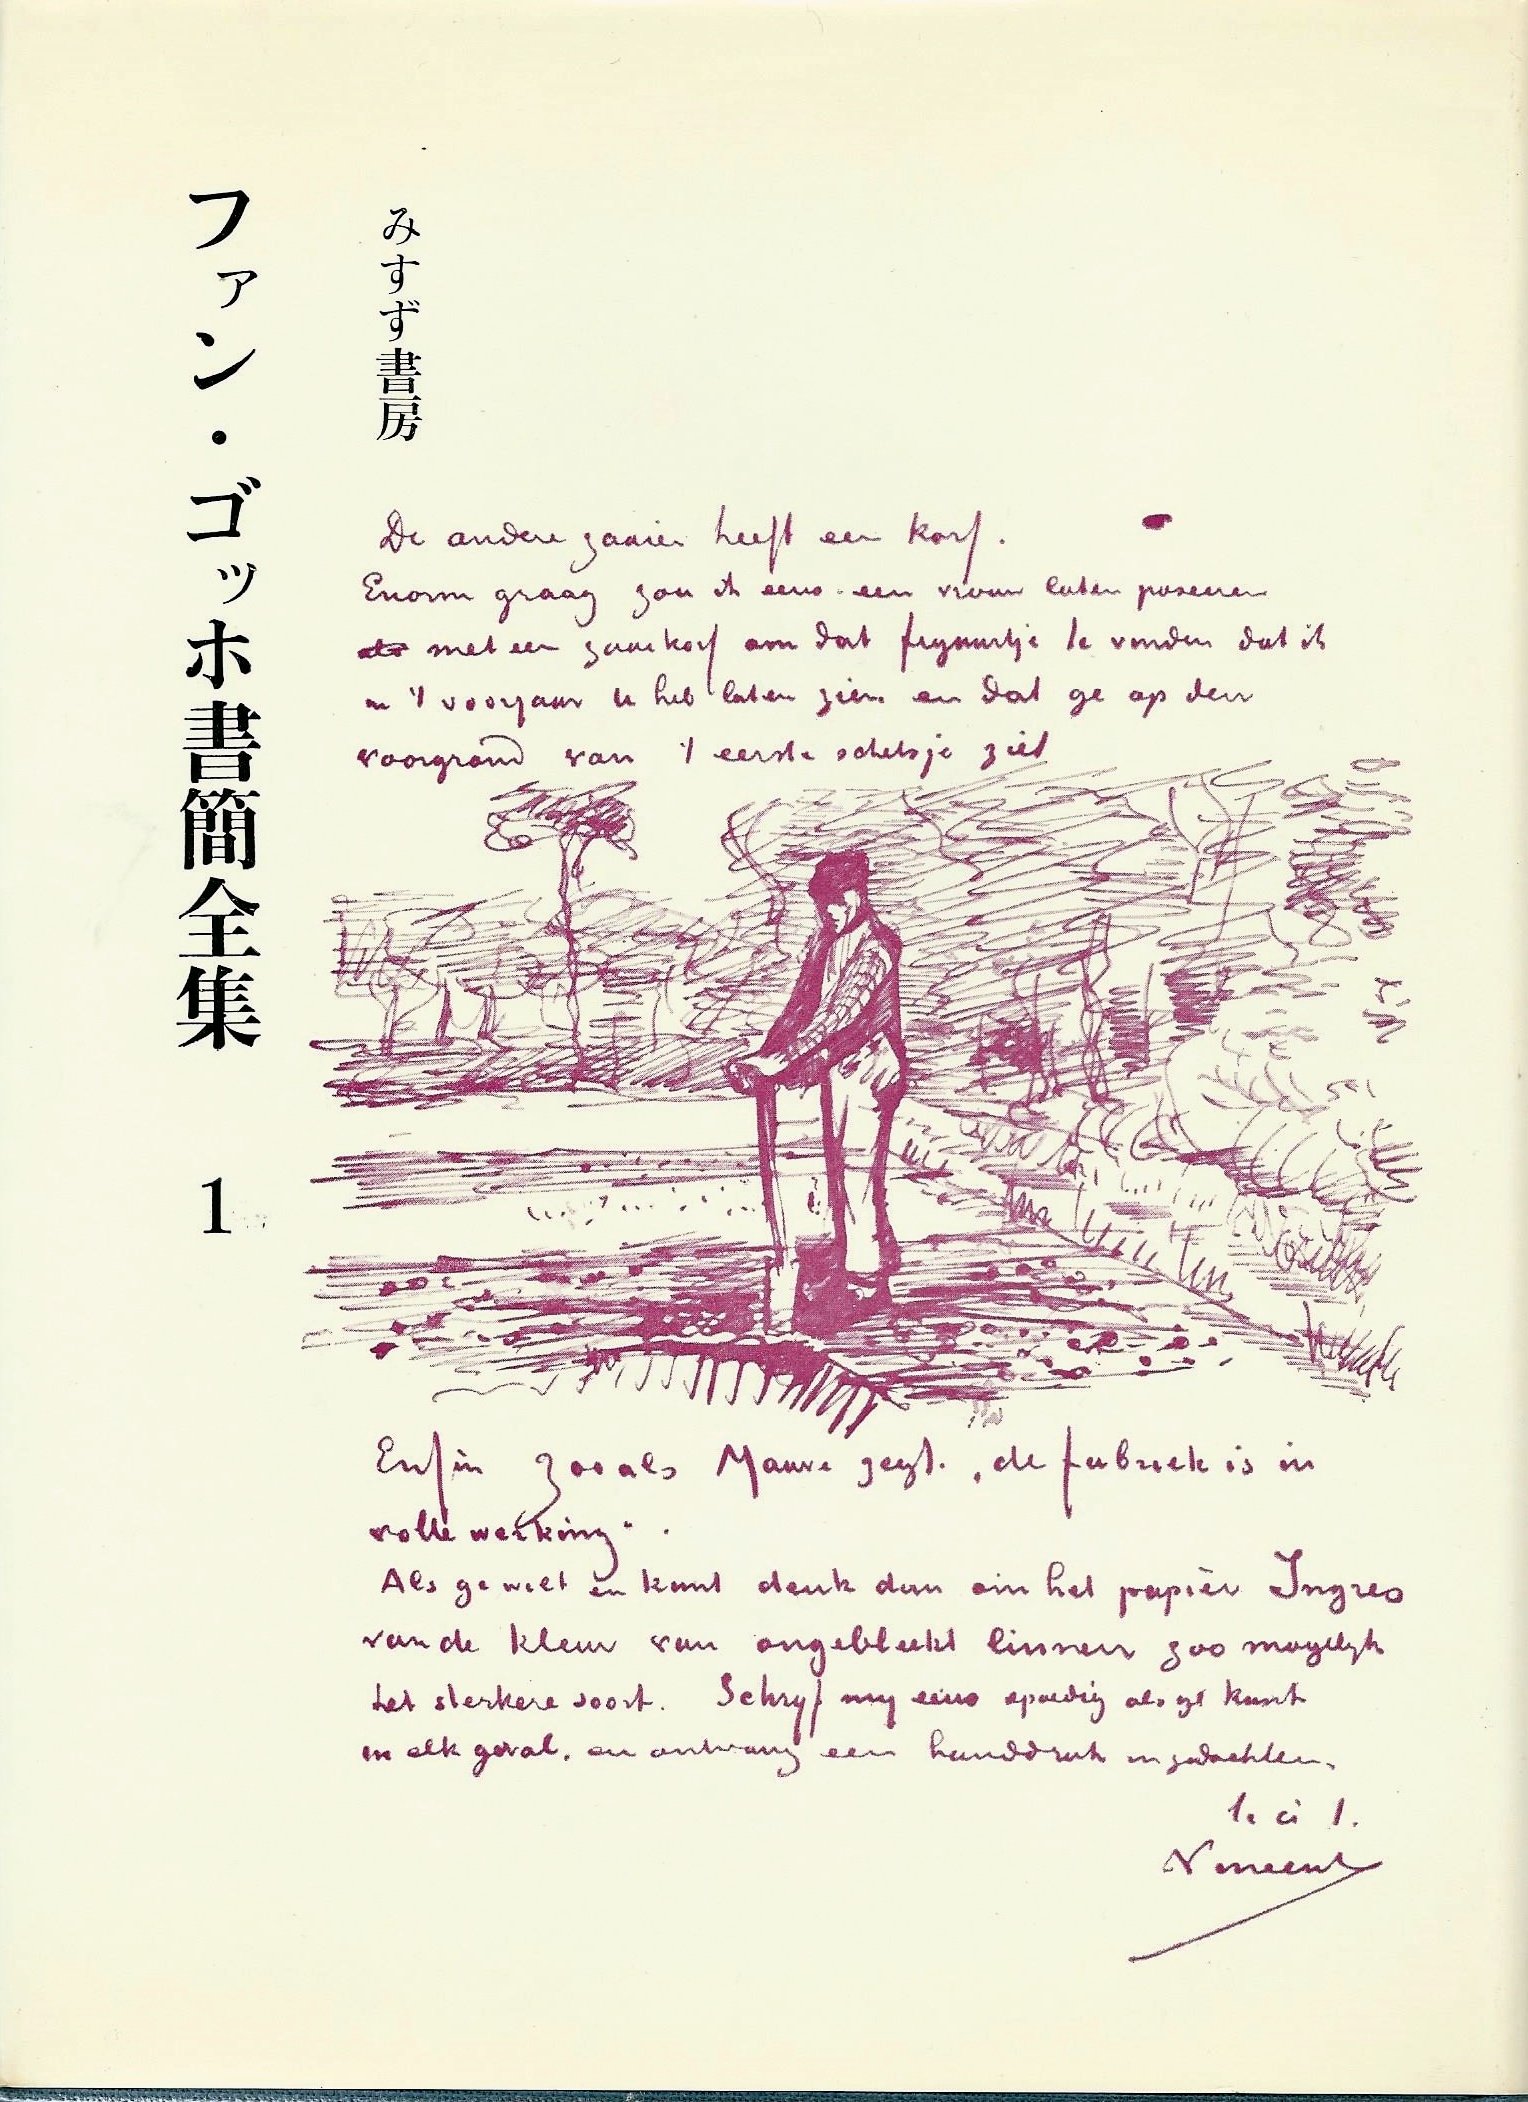 みすず書房
ファン・ゴッホ書簡全集 1
De andere zaaier heeft een korf.
Enorm graag zou ik eens een vrouw laten poseeren
met een zaaikorf om dat figuurtje te vinden dat ik
in 't voorjaar U heb laten zien en dat ge op den
voorgrond van 't eerste schetsje ziet
Enfin zooals Mauve zegt. „de fabriek is in
volle werking".
Als ge wilt en kunt denk dan om het papier Ingres
van de kleur van ongebleekt linnen zoo mogelijk
het sterkere soort. Schryf my eens spoedig als ge kunt
in elk geval, en ontvang een handdruk in gedachten,
t. à t.
Vincent